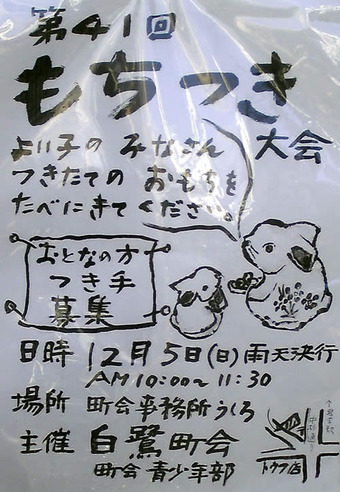 第41回
もちつき
大会
よい子の みなさん
つきたての おもちを
たべにきてください。
おとなの方
つき手
募集
日時 12月5日(日)雨天決行
AM10:00~11:30
場所 町会事務所うしろ
主催 白鷺町会
町会 青少年部